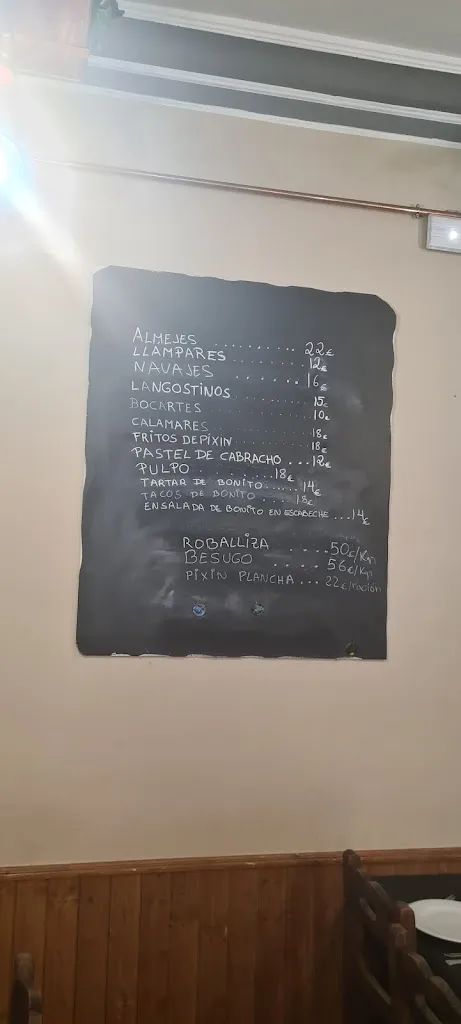 ALMEJES .......... 22€
LLAMPARES .......... 12€
NAVAJES ....... 16€
LANGOSTINOS .......... 15€
BOCARTES .......... 10€
CALAMARES .......... 18€
FRITOS DE PIXIN ....... 18€
PASTEL DE CABRACHO ... 12€
PULPO ......... 18€
TARTAR DE BONITO ...... 14€
TACOS DE BONITO .... 18€
ENSALADA DE BONITO EN ESCABECHE ... 14€
ROBALLIZA .... 50€/Kgr
BESUGO .... 56€/Kgr
PIXIN PLANCHA ... 22€/ración